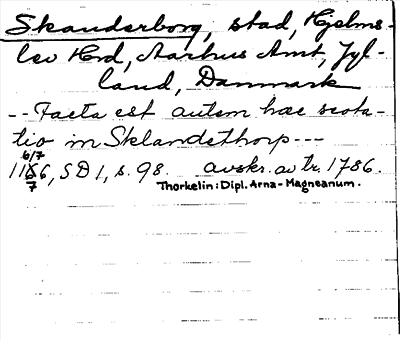 Skanderborg, stad, Hjelms-
lev Hrd, Aarhus Amt, Jyl-
land, Danmark
-- Facta est autem hæc scota-
tio in Sklandsthorp ---
6/7
1186, SD 1, s. 98. avskr. av tr. 1786.
7 Thorkelin: Dipl. Arna-Magnæanum.